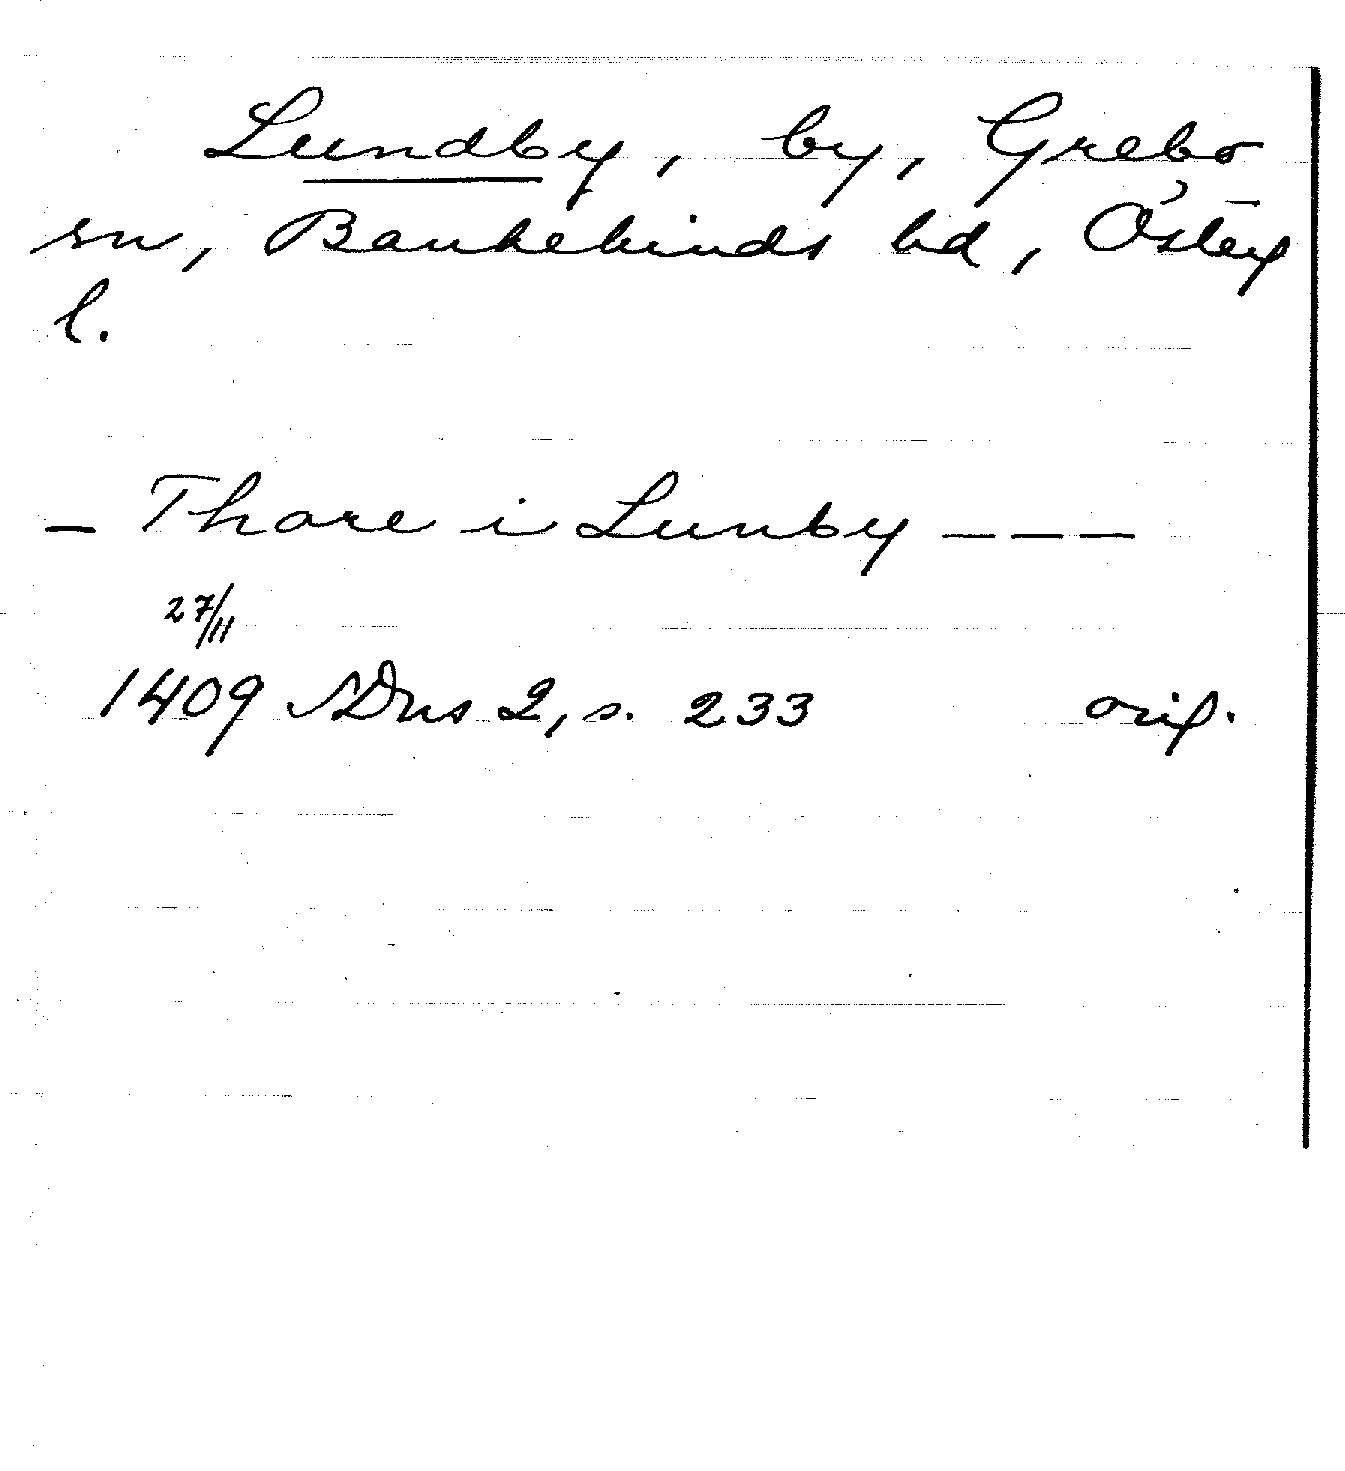 Lundby, by, Grebo
sn, Bankekinds hd, Österg
l.
– Thore i Lunby – – –
27/11
1409 SDns 2, s. 233 orig.